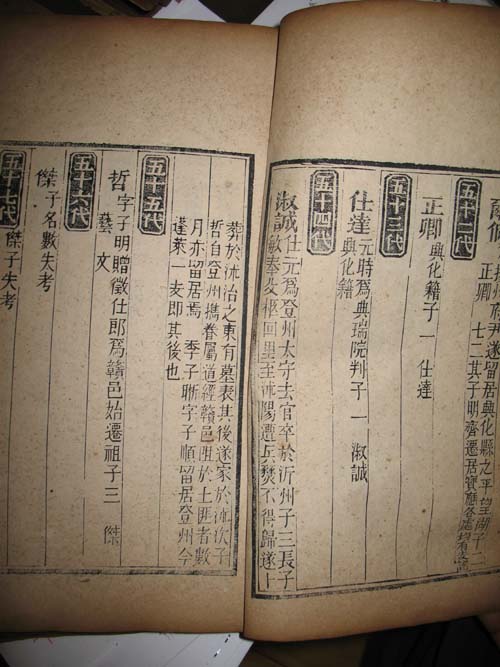 五十二代
府尹遂留居興化縣之平望湖子二
正卿
七二其子明齊遷居寶應各處均有
正卿興化籍子一 仕達
五十三代
仕達元時爲典瑞院判子一 淑誠
興化籍
五十四代
淑誠仕元爲登州太守去官卒於沂州子三長子
敏奉父柩回里至沭陽遭兵燹不得歸遂卜
葬於沭治之東有墓表其後遂家於沭次子
哲自登州攜眷屬道經贛邑阻於土匪者數
月亦留居焉 季子聯字子順留居登州今
蓬萊一支即其後也
五十五代
哲字子明贈徵仕郎爲贛邑始遷祖子三 傑
藝 文
五十六代
傑子名數失考
五十七代
傑子失考